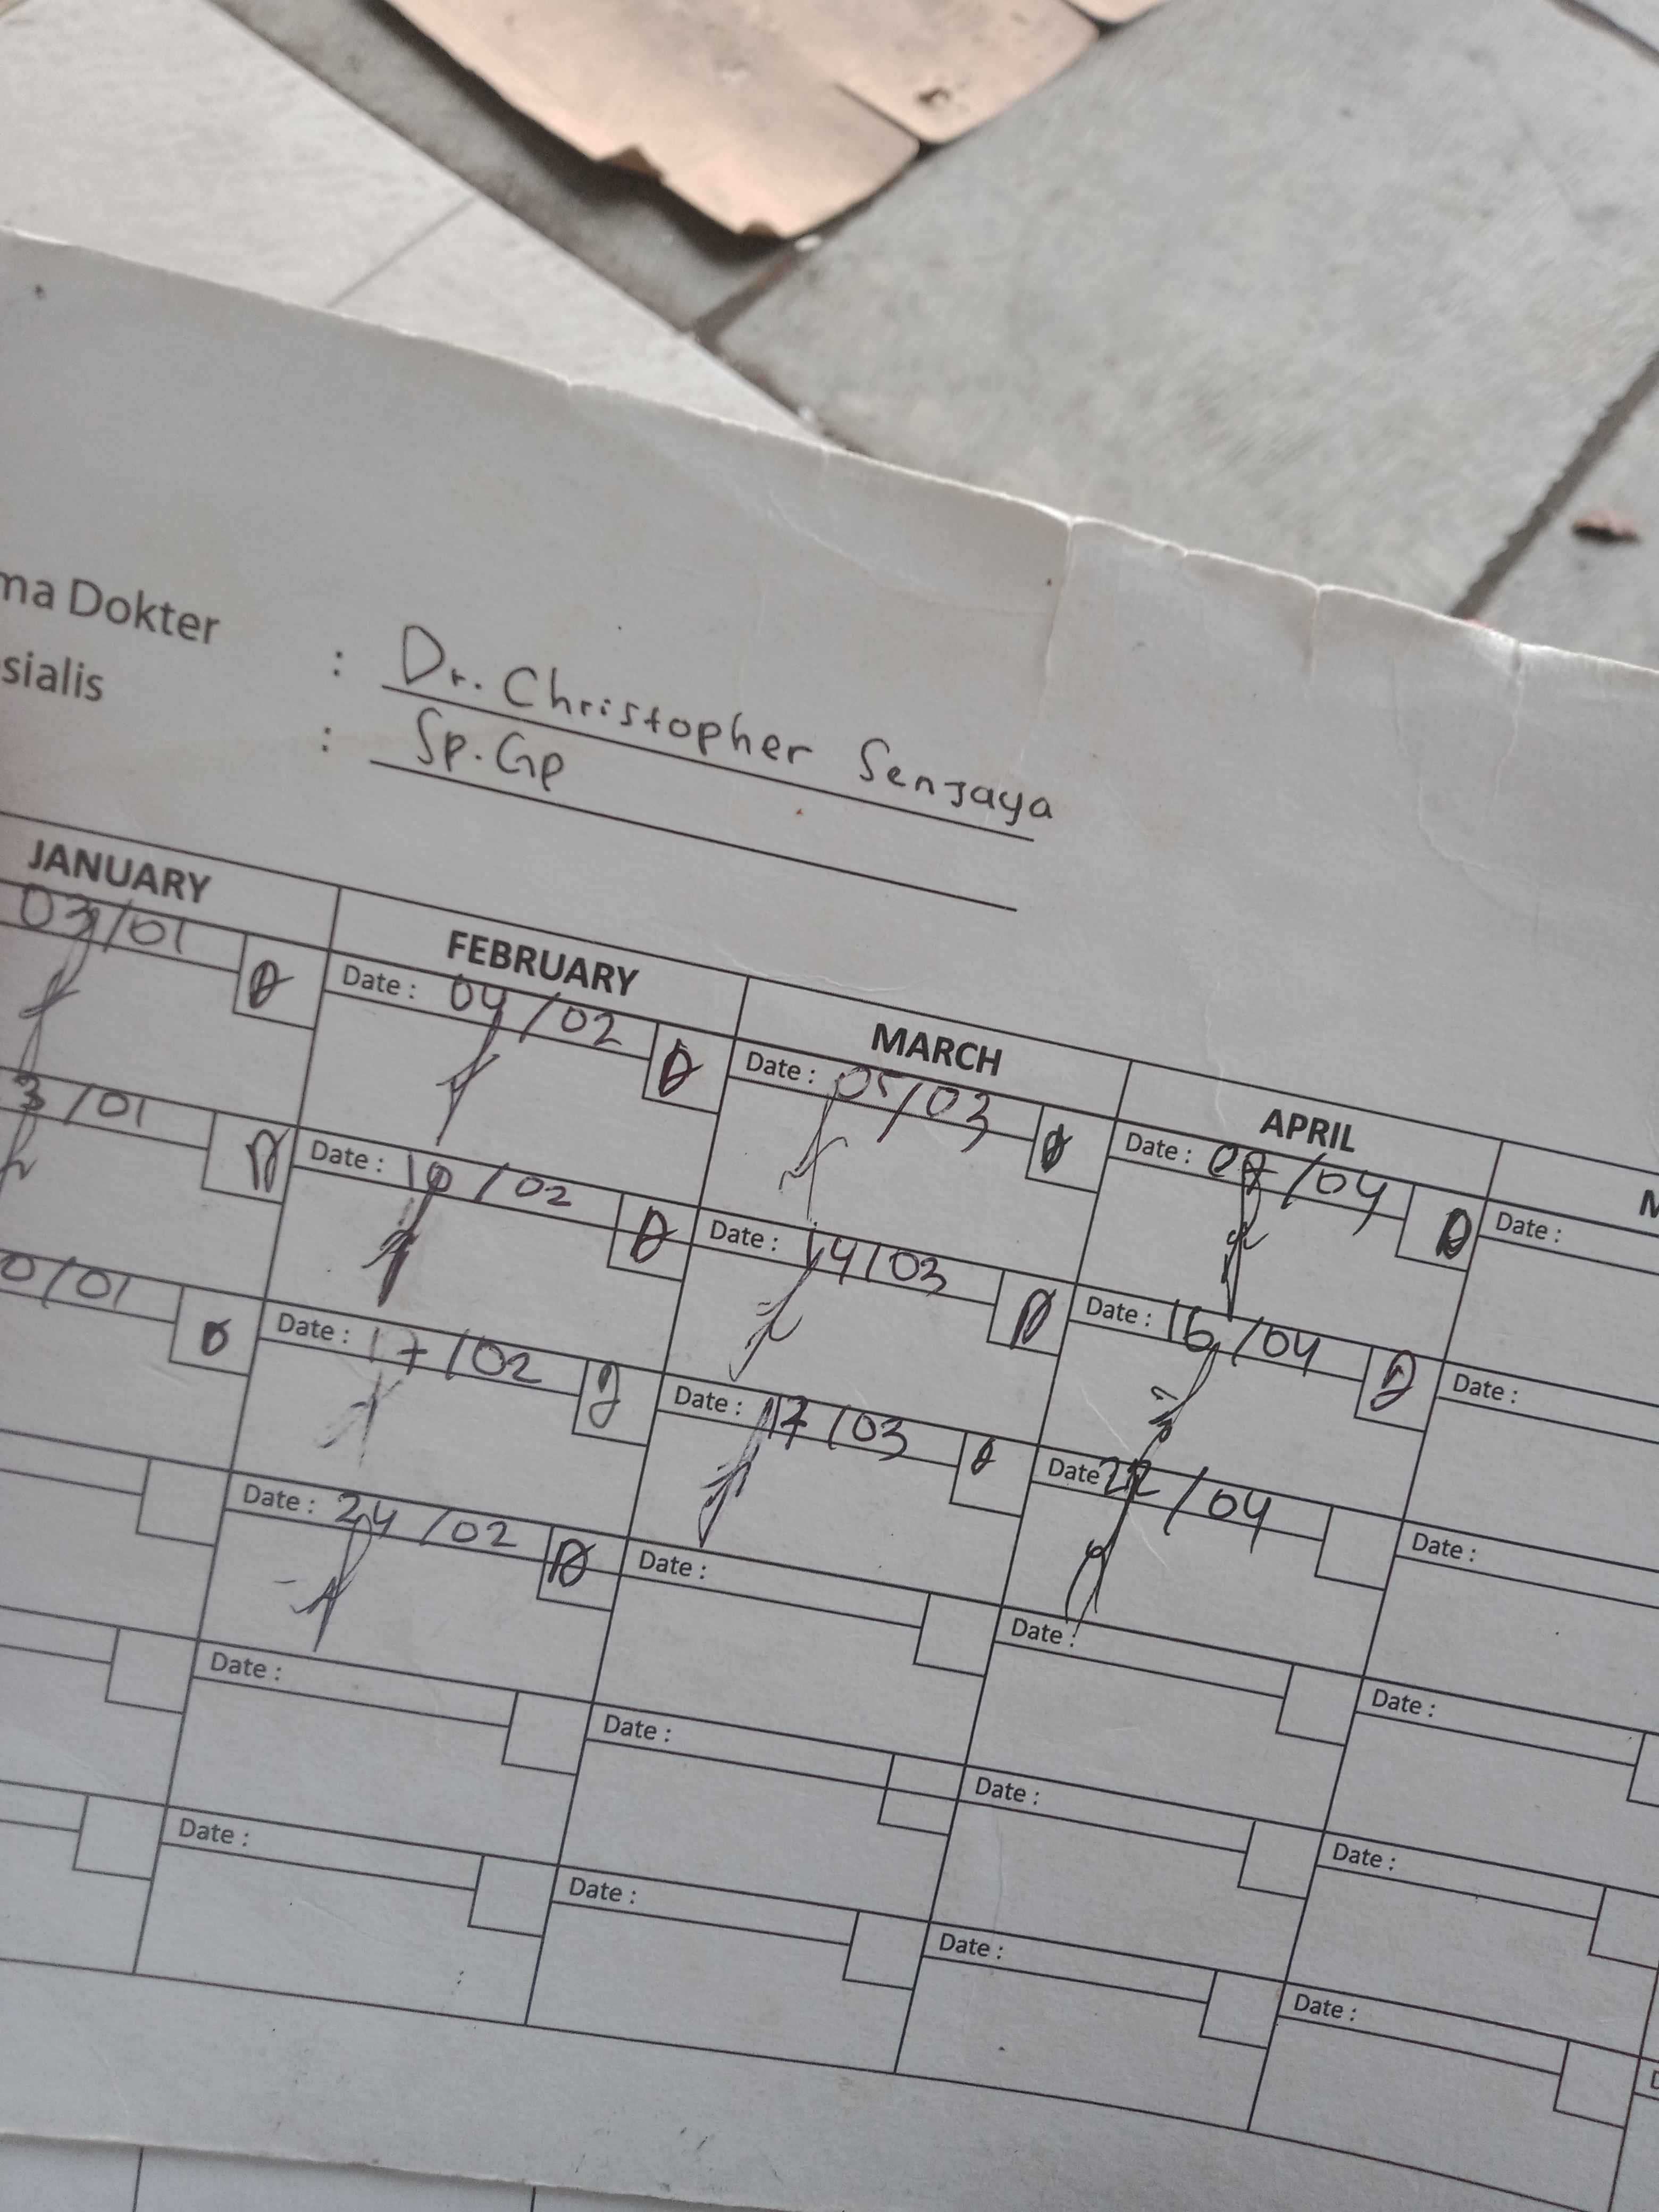 ma Dokter : Dr. Christopher Senjaya
sialis : Sp.Gp
JANUARY FEBRUARY MARCH APRIL M
03/01 Date : 04/02 Date : 05/03 Date : /04 Date :
3/01 Date : 10/02 Date : 14/03 Date : 16/04 Date :
0/01 Date : 17/02 Date : 17/03 Date 22/04 Date :
Date : 24/02 Date : Date : Date :
Date : Date : Date : Date :
Date : Date : Date : Date :